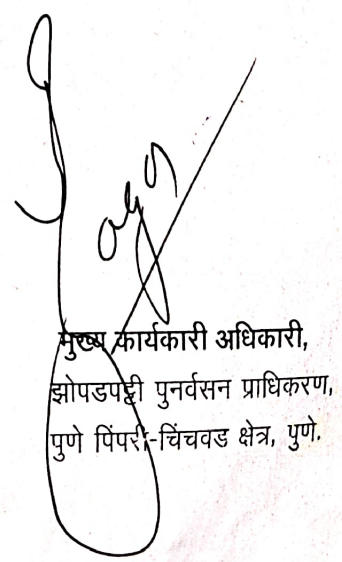 मुख्य कार्यकारी अधिकारी,
झोपडपट्टी पुनर्वसन प्राधिकरण,
पुणे पिंपरी-चिंचवड क्षेत्र, पुणे.